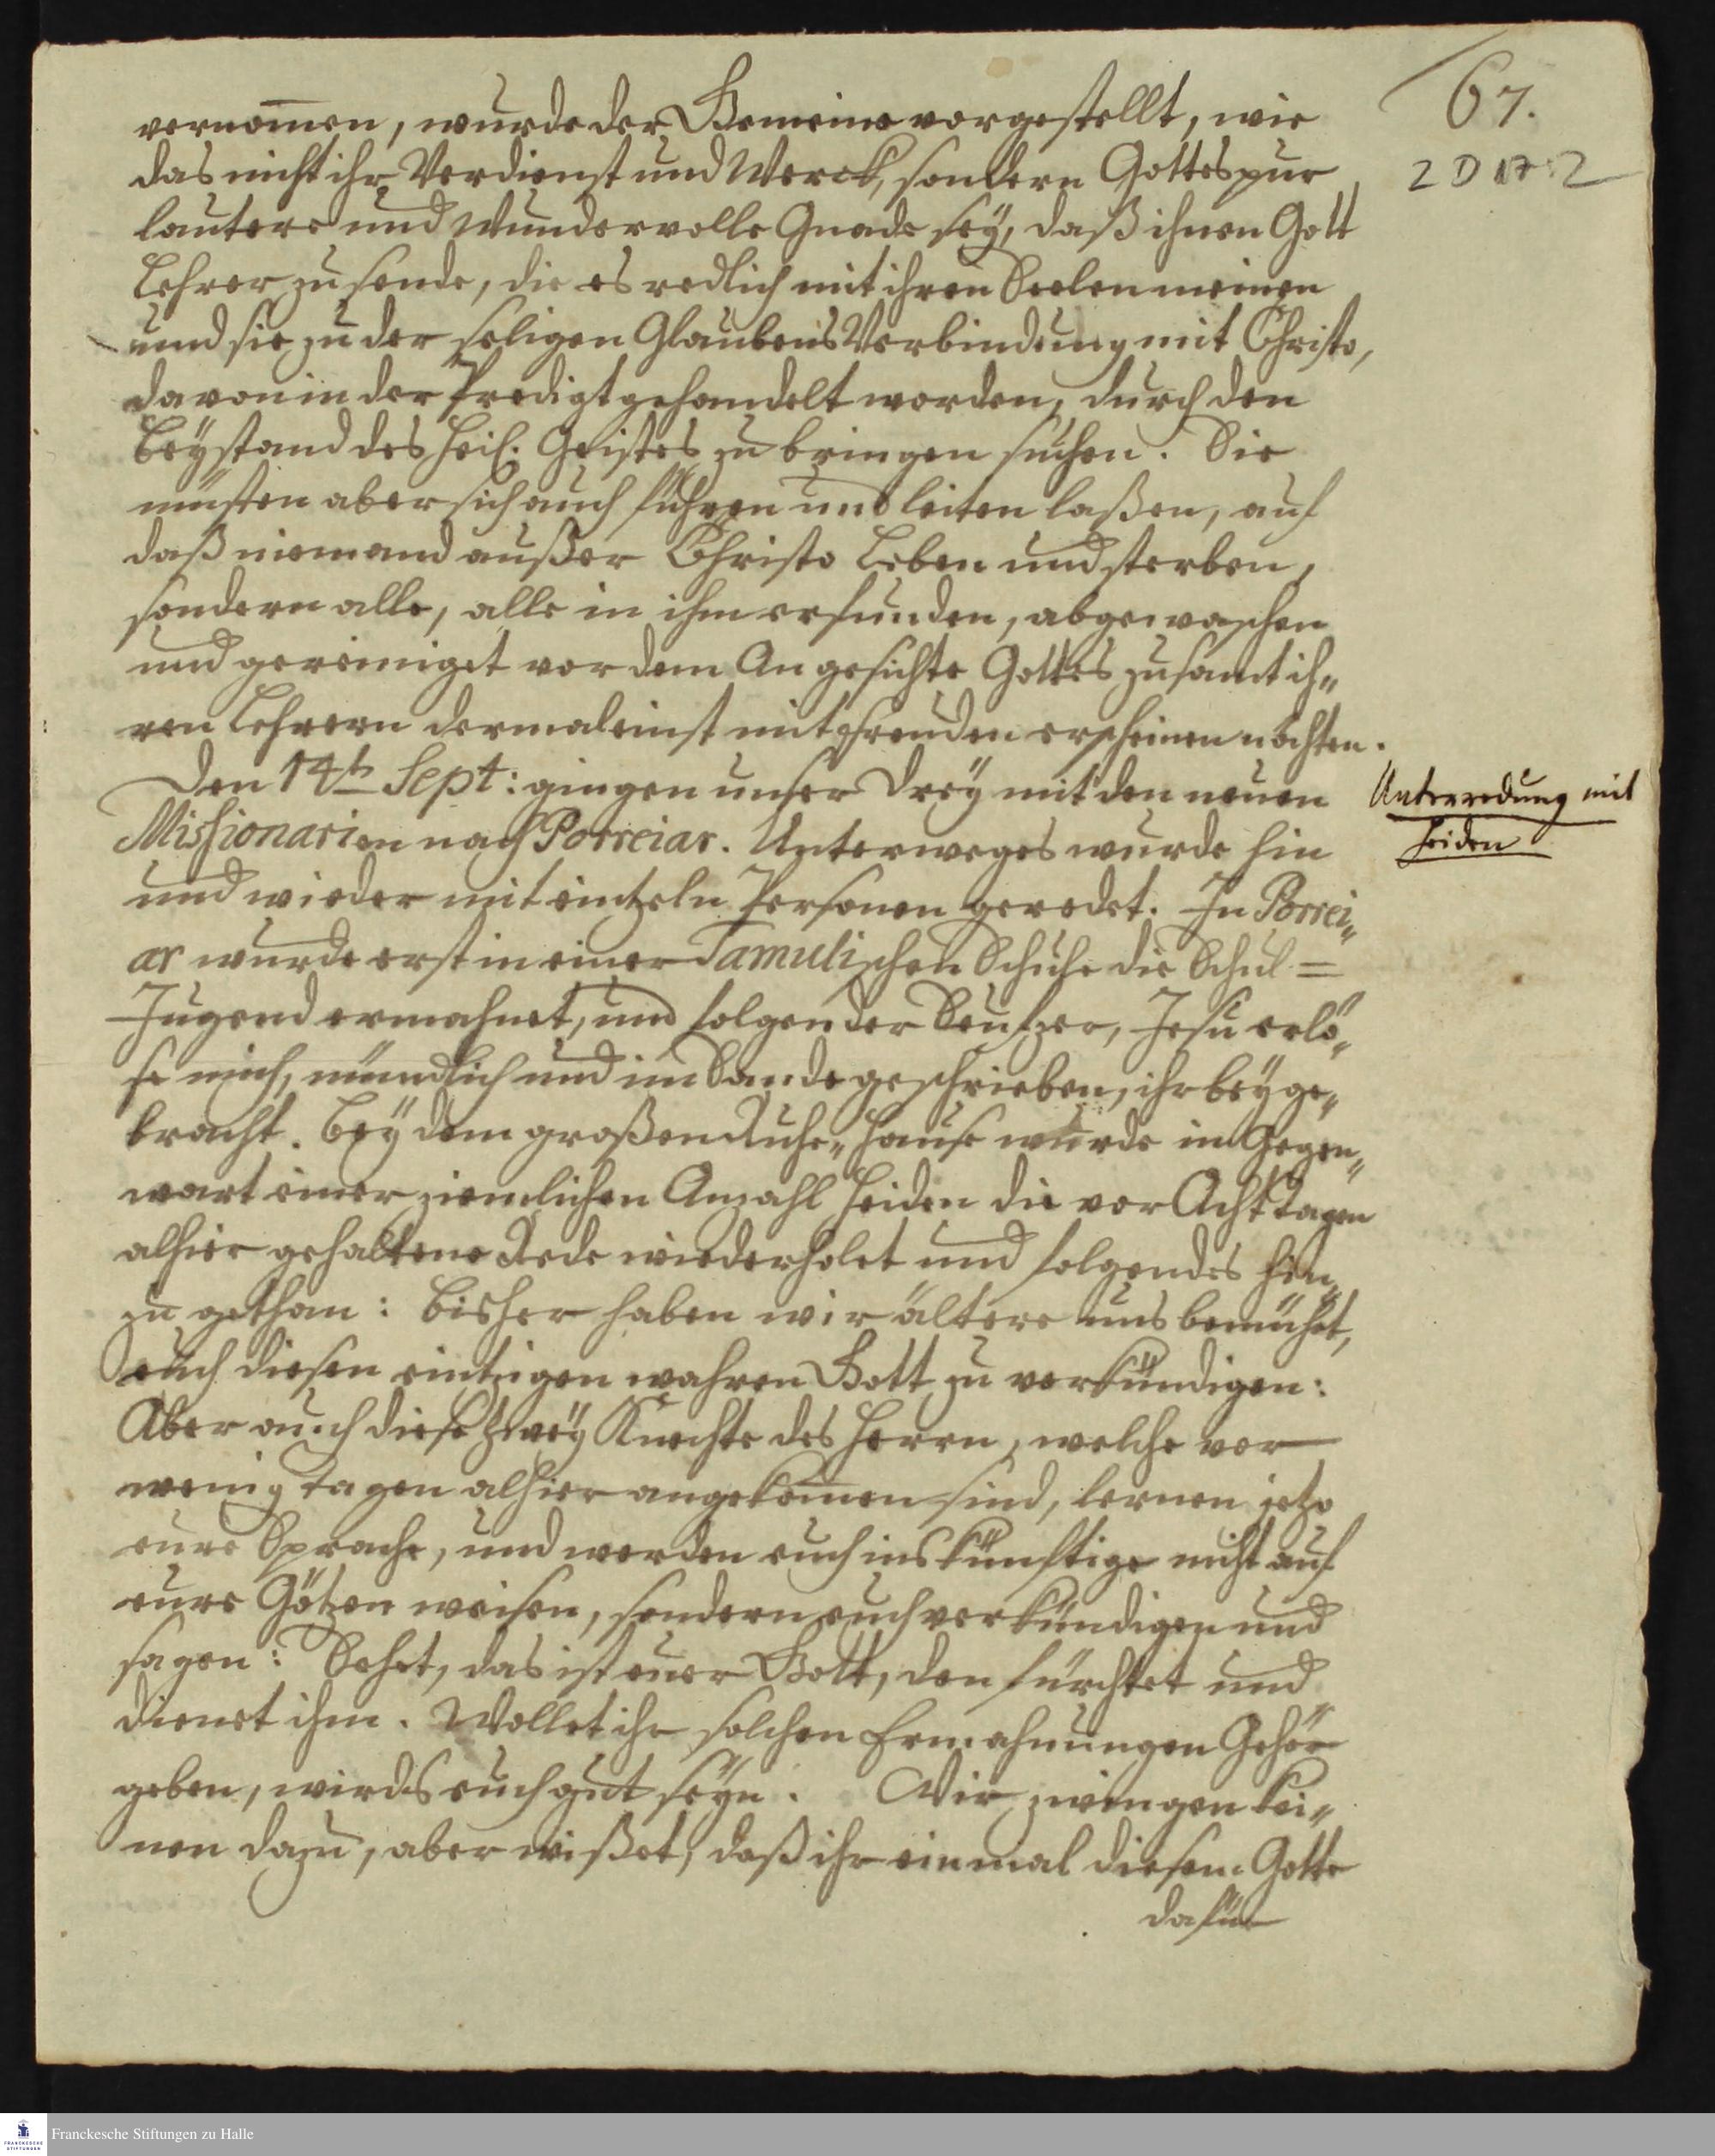 67.
2 D 17 : 2
vernom̅en, wurde der Gemeine vorgestellt, wie
das nicht ihr Verdienst und Werck, sondern Gottes pur
lautere und Wundervolle Gnade sey, daß ihnen Gott
Lehrer zu sende, die es redlich mit ihren Seelen meinen
und sie zu der seligen Glaubens Verbindung mit Christo,
davon in der Predigt gehandelt worden, durch den
Beystand des Heil. Geistes zu bringen suchen. Sie
müsten aber sich auch führen und leiten laßen, auf
daß niemand außer Christo Leben und sterben,
sondern alle, alle in ihm erfunden, abgewaschen
und gereiniget vor dem Angesichte Gottes zusamt ih„
ren Lehrern dermaleinst mit Freuden erscheinen möchten.
Den 14th Sept: gingen unser Drey mit den neuen
Missionarien nach Porreiar. Unterweges wurde hin
und wieder mit eintzeln Personen geredet. In Porrei„
ar wurde erst in einer Tamulischen Schule die Schul=
Jugend ermahnet, und folgender Seufzer, Jesu erlö„
se mich, mündlich und im Sande geschrieben, ihr beyge„
bracht. Bey dem großen Ruhe„Hause wurde in Gegen„
wart einer ziemlichen Anzahl Heiden die vor Acht Tagen
alhier gehaltene Rede wiederholet und folgendes hin„
zu gethan: Bisher haben wir ältere uns bemühet,
euch diesen eintzigen wahren Gott zu verkündigen:
Aber auch diese zwey Knechte des Herrn, welche vor
wenig Tagen alhier angekom̅en sind, lernen jetzo
eure Sprache, und werden euch ins künftige nicht auf
eure Götzen weisen, sondern euch verkündigen und
sagen: Sehet, das ist euer Gott, den fürchtet und
dienet ihm. Wollet ihr solchen Ermahnungen Gehör
geben, wirds euch gut seyn. Wir zwingen kei„
nen dazu, aber wißet, daß ihr einmal diesem Gotte
dafür
Unterredung mit
Heiden
Franckesche Stiftungen zu Halle
FRANCKESCHE
STIFTUNGEN